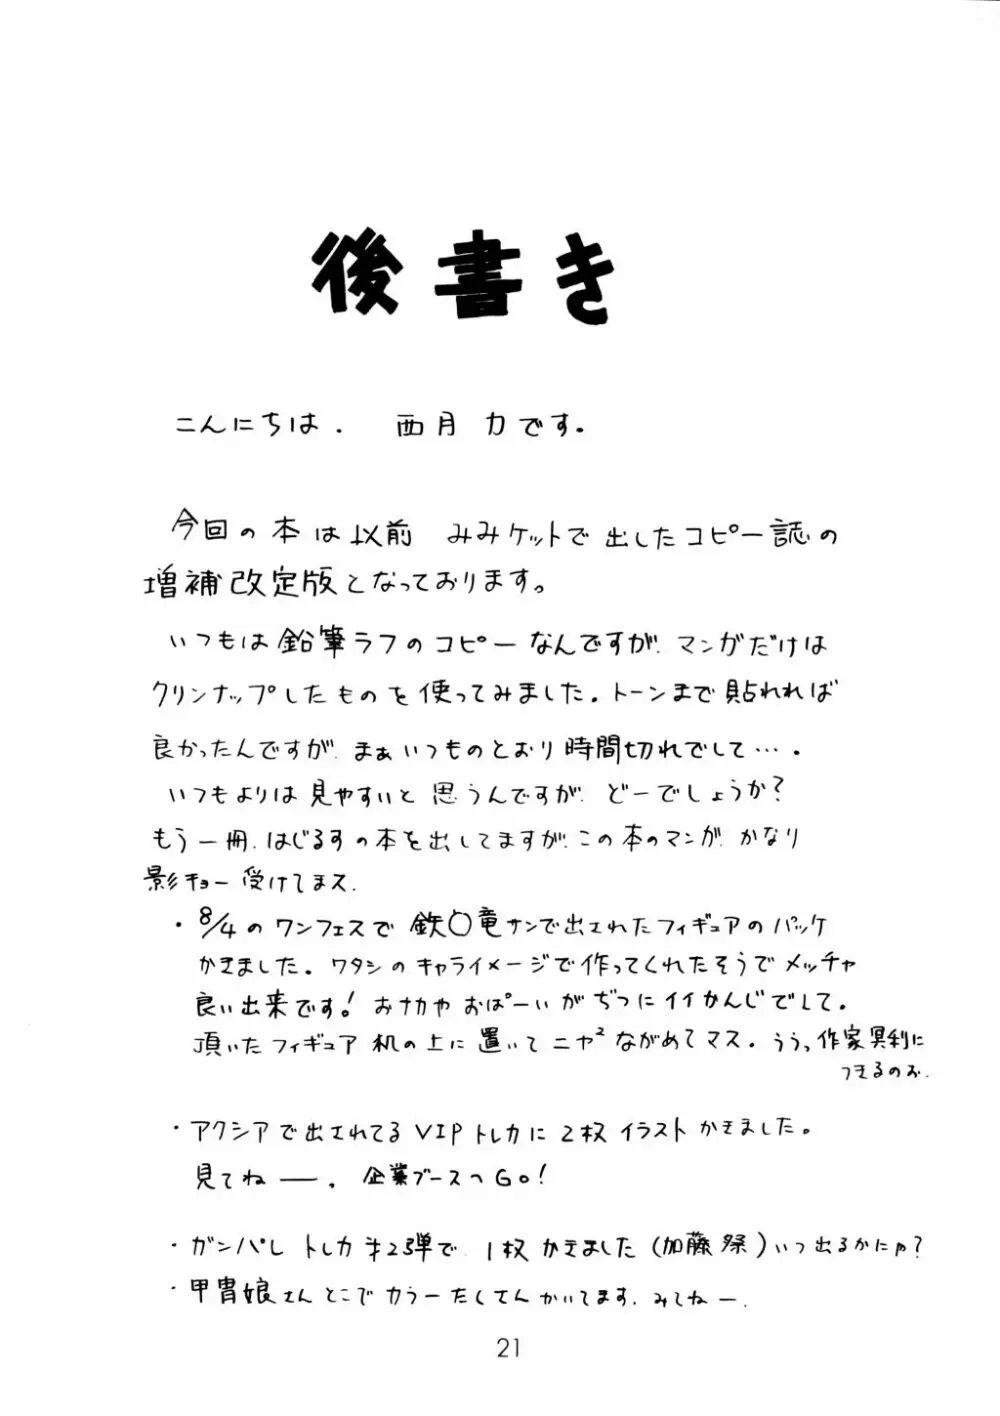 後書き
こんにちは. 西月 力です。
今回の本は以前 みみケットで出したコピー誌の
増補改定版となっております。
いつもは鉛筆ラフのコピーなんですが、マンガだけは
クリンナップしたものを使ってみました。トーンまで貼れれば
良かったんですが、まぁいつものとおり時間切れでして…．
いつもよりは見やすいと思うんですが、どーでしょうか?
もう一冊、はじるすの本を出してますが、この本のマンガ、かなり
影キョー受けてまス.
・8/4のワンフェスで 鉄〇竜サンで出されたフィギュアのパッケ
かきました。ワタシのキャライメージで作ってくれたそうでメッチャ
良い出来です! おナカやおぱーいがぢつにイイかんじでして。
頂いたフィギュア机の上に置いてニヤ²ながめてマス。ううっ、作家冥利に
つきるのお.
・アクシアで出されてるVIPトレカに2枚イラストかきました。
見てねー。企業ブースへGo!
・ガンパレ トレカ#23弾で、1枚かきました(加藤祭)いつ出るかにゃ?
・甲冑娘さんとこでカラーたくさんかいてます、みてねー.
21